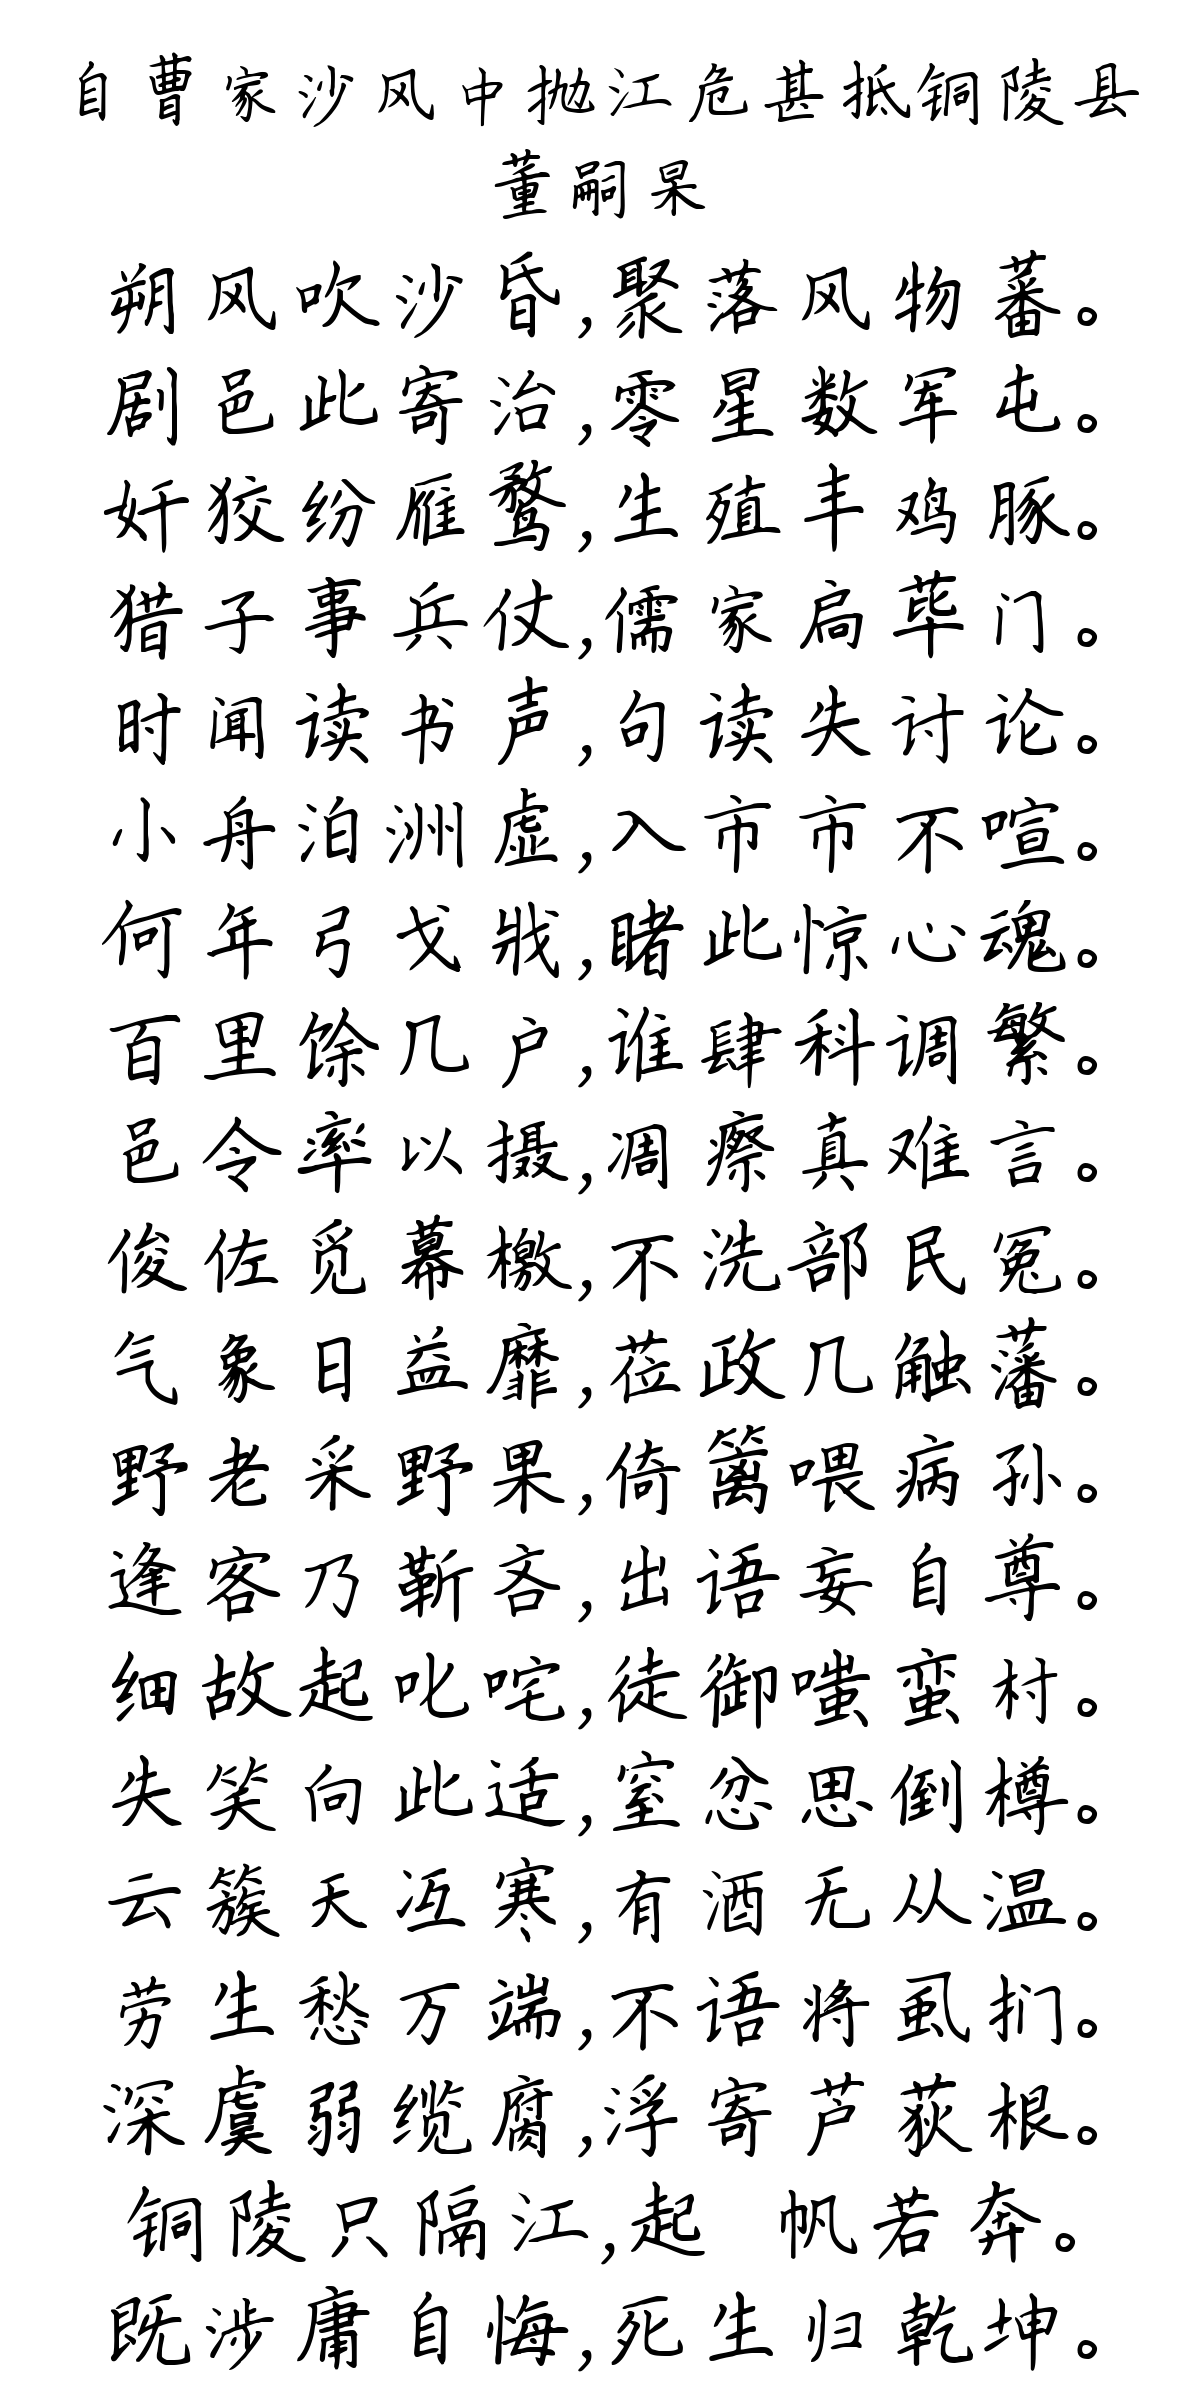 自曹家沙风中抛江危甚抵铜陵县
董嗣杲
朔风吹沙昏,聚落风物蕃。
剧邑此寄治,零星数军屯。
奸狡纷雁鹜,生殖丰鸡豚。
猎子事兵仗,儒家扃荜门。
时闻读书声,句读失讨论。
小舟泊洲虚,入市市不喧。
何年弓戈戕,睹此惊心魂。
百里馀几户,谁肆科调繁。
邑令率以摄,凋瘵真难言。
俊佐觅幕檄,不洗部民冤。
气象日益靡,莅政几触藩。
野老采野果,倚篱喂病孙。
逢客乃靳吝,出语妄自尊。
细故起叱咤,徒御嗤蛮村。
失笑向此适,窒忿思倒樽。
云簇天冱寒,有酒无从温。
劳生愁万端,不语将虱扪。
深虞弱缆腐,浮寄芦荻根。
铜陵只隔江,起 帆若奔。
既涉庸自悔,死生归乾坤。